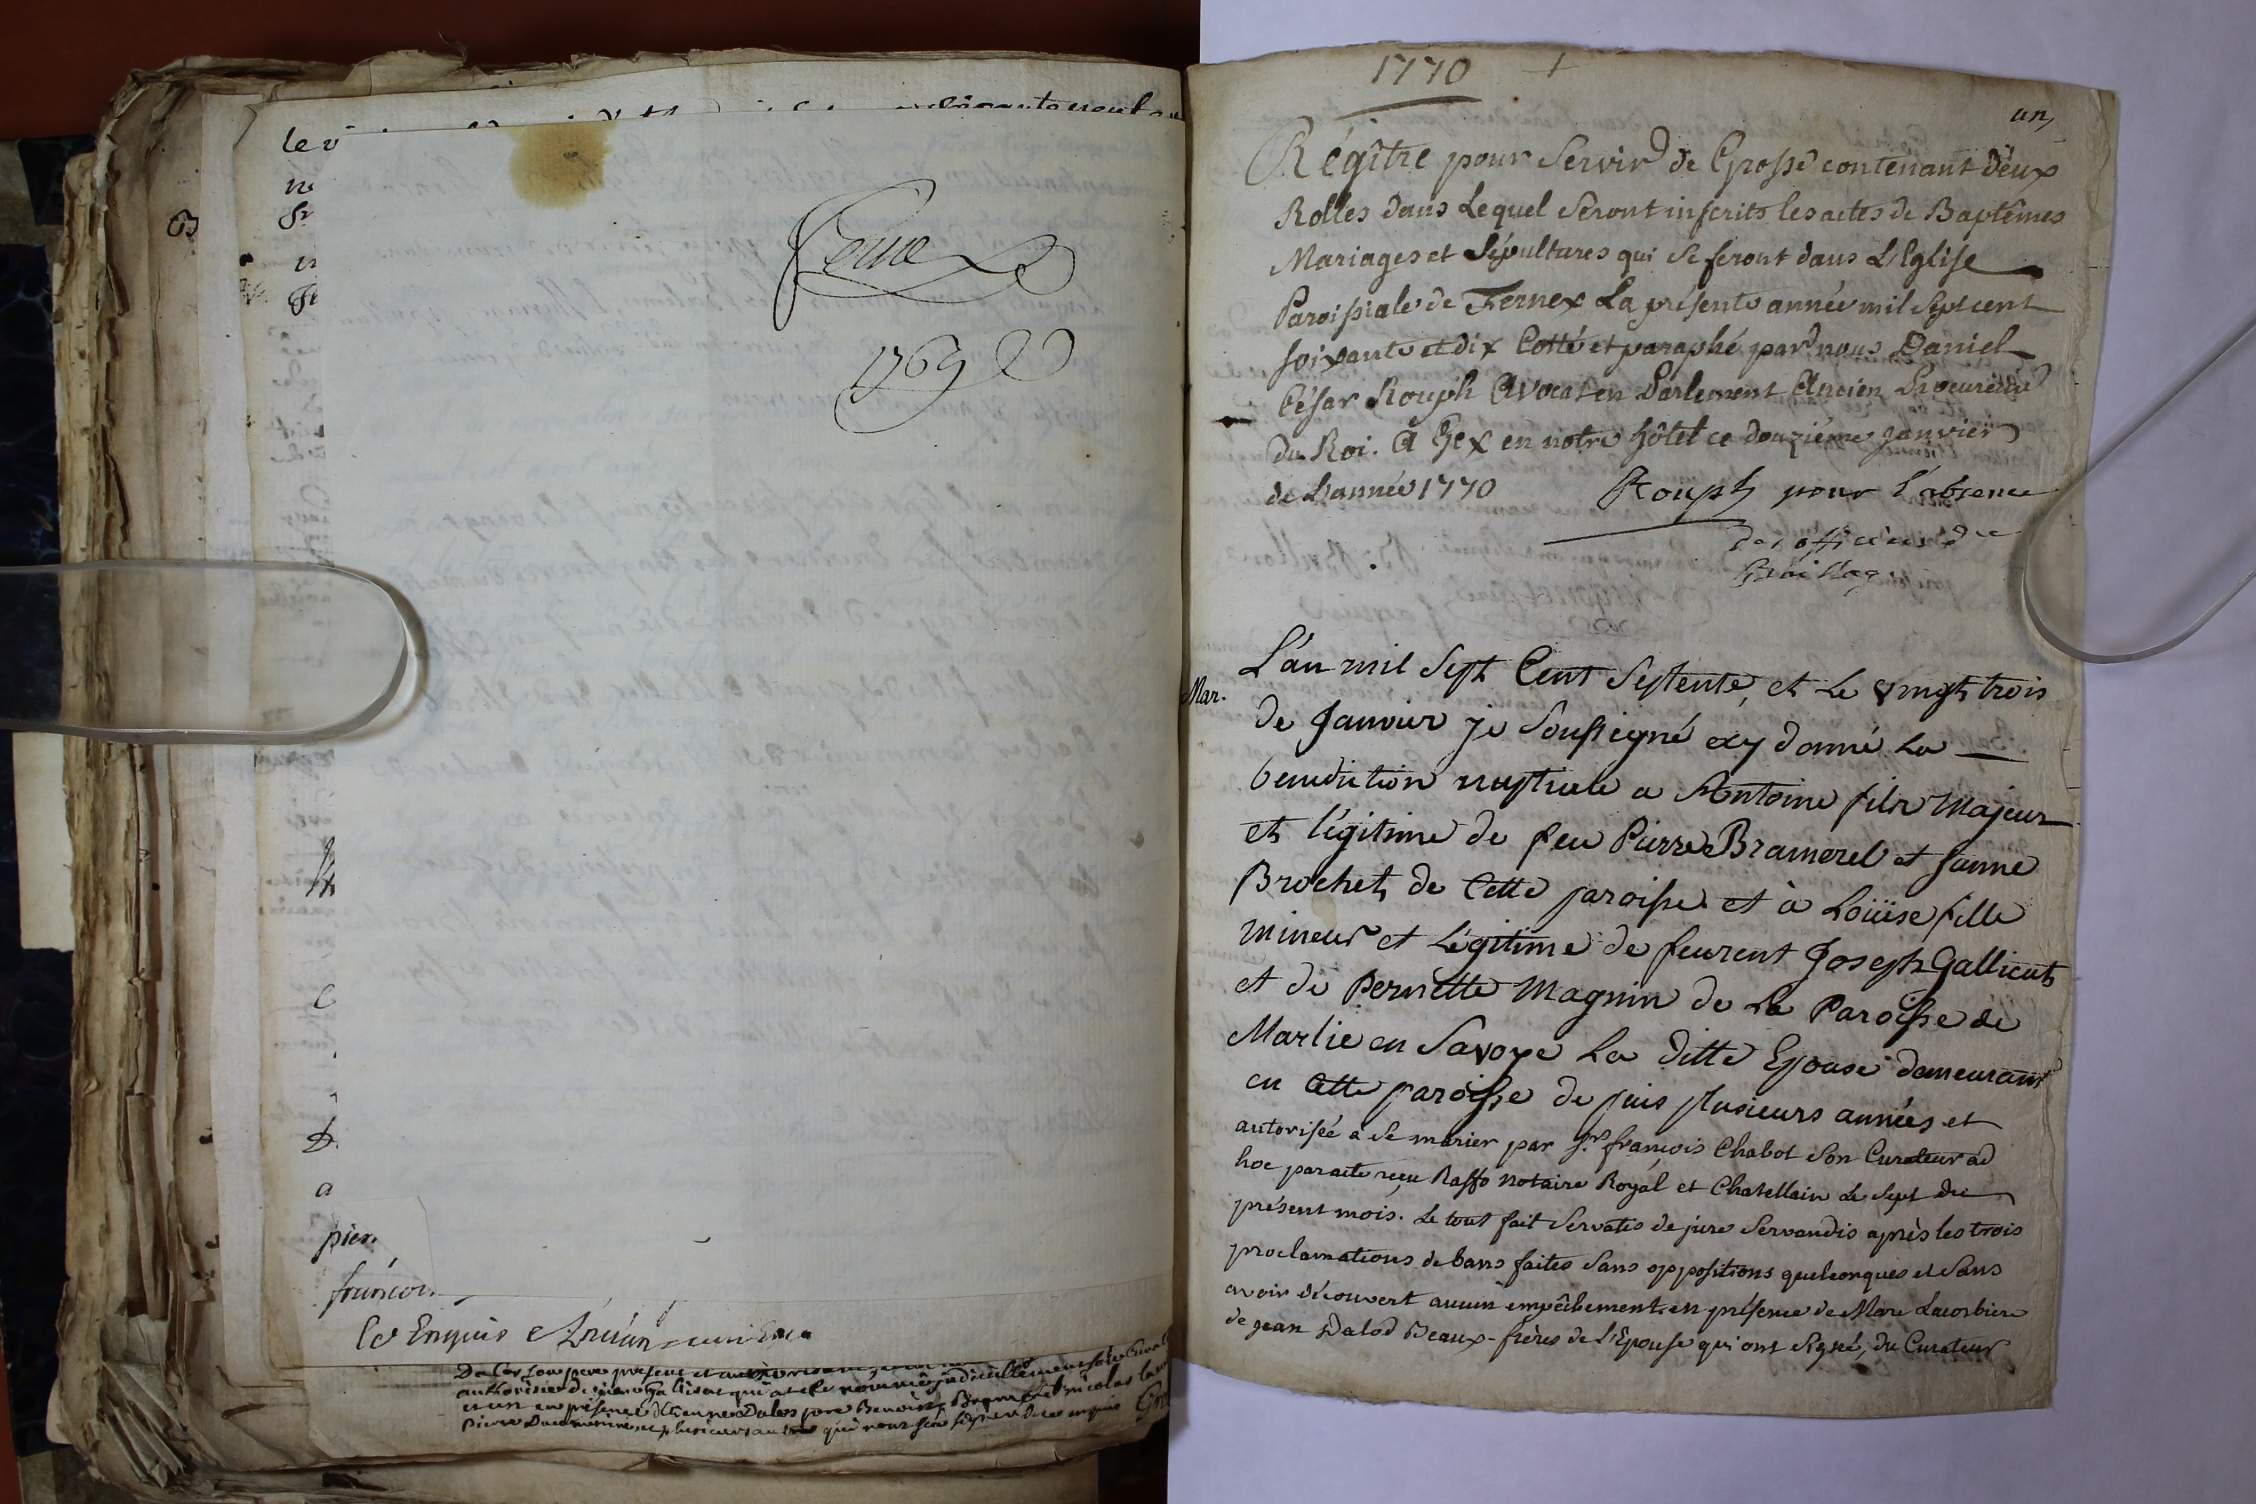 le v
Ferne
1769
pier.
françoi
et Enquis
De Ces Son pere présent et
authorisée de
et est en présence d'Etienne Dalos père Benoist Bramerel nicolas
Pierre et plusieurs autres qui n'ont sçu signer de ce enquis
1770
un,
Régître pour Servir de Grosse contenant deux
Rolles dans Lequel Seront inscrits les actes de Baptêmes
Mariages et Sépultures qui se feront dans L'Eglise
Paroissiale de Fernex La présente année mil sept cent
soixante et dix Cotté et paraphé par nous Daniel
César Rouph Avocat en Parlement Ancien Procureur
du Roi. A Gex en notre hôtel ce douzième janvier
de L'année 1770 Rouph pour l'absence
des officiers du
Bailliage
Mar.
L'an mil Sept Cent Septente, et Le vingt trois
de Janvier je Soussigné ay donné La
benediction nuptiale a Antoine fils Majeur
et légitime de feu Pierre Bramerel et Janne
Brochet, de Cette paroisse et à Loüise fille
mineur et Légitime de feurent Joseph Gallicat
et de Pernette Magnin de La Paroisse de
Marlie en Savoye La ditte Epouse demeurant
en Cette paroisse de puis plusieurs années et
autorisée a se marier par Sr. françois Chabot Son Curateur ad
hoc par acte reçu Raffo Notaire Royal et Chatellain Le Sept du
présent mois. Le tout fait Servatis de jure Servandis après les trois
proclamations de bans faites Sans oppositions quelconques et Sans
avoir découvert aucun empêchement, en présence de Marc Lacorbiere
de Jean Dalod Beaux-frères de l'Epouse qui ont Signé, du Curateur